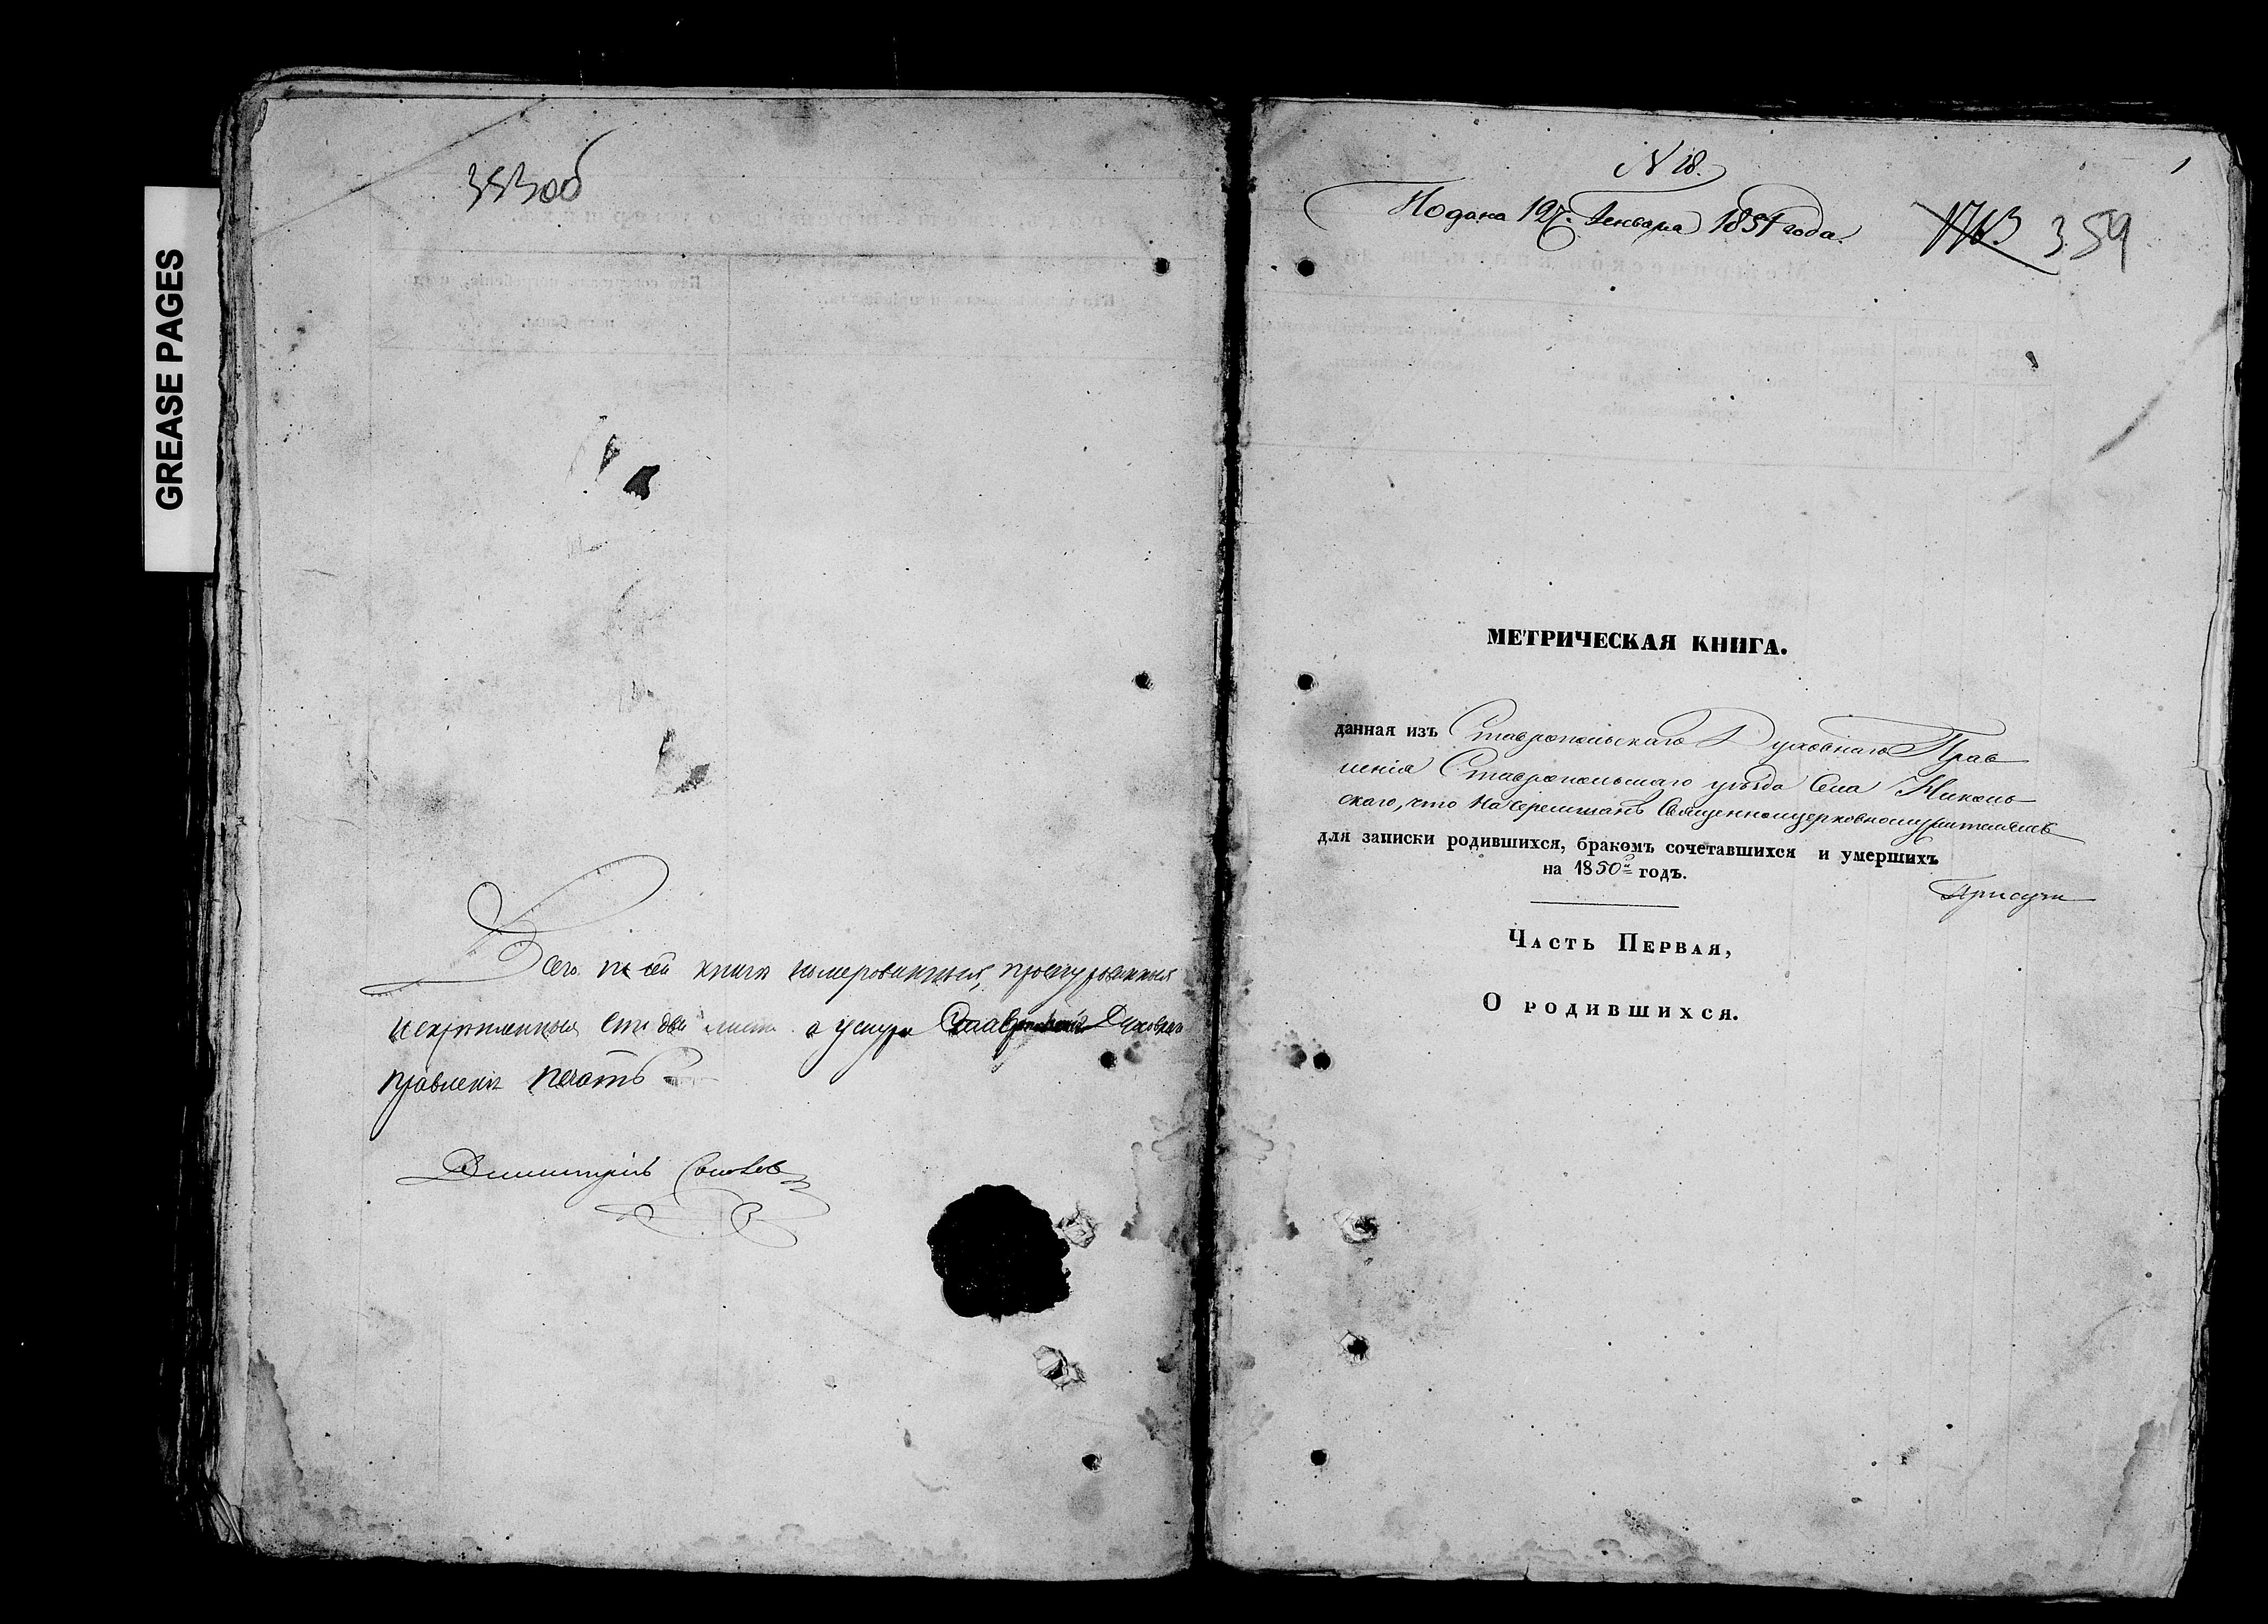 GREASE PAGES
353об
Всего въ сей книге номерованныхъ, прошнурованныхъ
и скрепленныхъ сто два листа а у шнура Ставропольскаго Духовнаго
правления печать
Димитрій
N 18.
1
Подана 19го Генваря 1851 года.
359
МЕТРИЧЕСКАЯ КНИГА.
данная изъ Ставропольскаго Духовнаго Прав
ленія Ставропольскаго уѣзда Села Николь
скаго, что на Черемшанѣ Священноцерковнослужителямъ
для записки родившихся, бракомъ сочетавшихся и умершихъ
на 1850й годъ.
Присут
Часть Первая,
О родившихся.